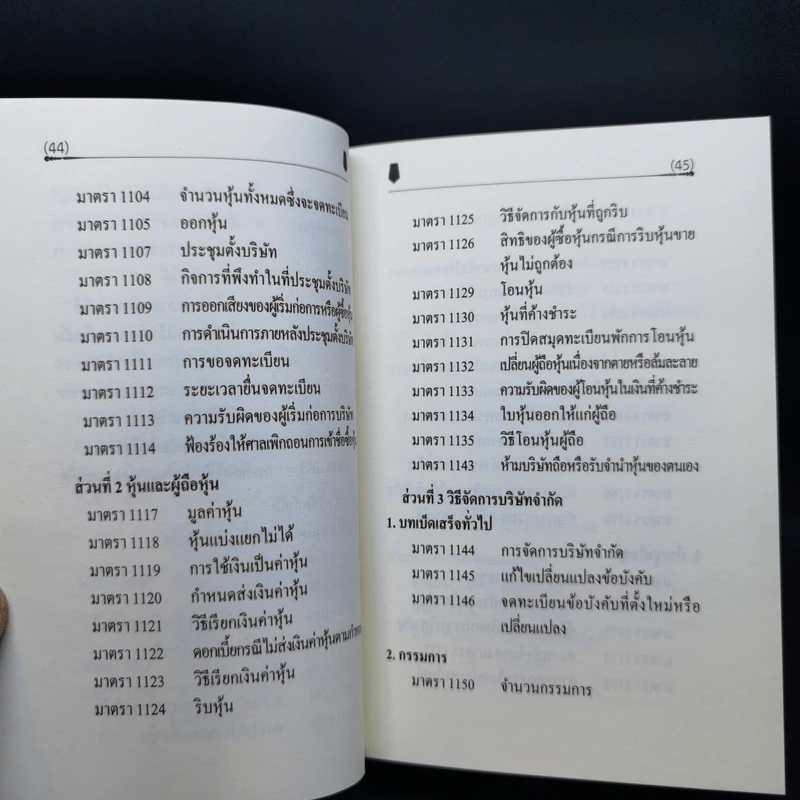 (44)
มาตรา 1104 จำนวนหุ้นทั้งหมดซึ่งจะจดทะเบียน
มาตรา 1105 ออกหุ้น
มาตรา 1107 ประชุมตั้งบริษัท
มาตรา 1108 กิจการที่พึงทำในที่ประชุมตั้งบริษัท
มาตรา 1109 การออกเสียงของผู้เริ่มก่อการหรือผู้ซื้อหุ้น
มาตรา 1110 การดำเนินการภายหลังประชุมตั้งบริษัท
มาตรา 1111 การขอจดทะเบียน
มาตรา 1112 ระยะเวลายื่นจดทะเบียน
มาตรา 1113 ความรับผิดของผู้เริ่มก่อการบริษัท
มาตรา 1114 ฟ้องร้องให้ศาลเพิกถอนการเข้าชื่อซื้อหุ้น
ส่วนที่ 2 หุ้นและผู้ถือหุ้น
มาตรา 1117 มูลค่าหุ้น
มาตรา 1118 หุ้นแบ่งแยกไม่ได้
มาตรา 1119 การใช้เงินเป็นค่าหุ้น
มาตรา 1120 กำหนดส่งเงินค่าหุ้น
มาตรา 1121 วิธีเรียกเงินค่าหุ้น
มาตรา 1122 ดอกเบี้ยกรณีไม่ส่งเงินค่าหุ้นตามกำหนด
มาตรา 1123 วิธีเรียกเงินค่าหุ้น
มาตรา 1124 ริบหุ้น
(45)
มาตรา 1125 วิธีจัดการกับหุ้นที่ถูกริบ
มาตรา 1126 สิทธิของผู้ซื้อหุ้นกรณีการริบหุ้นขาย
หุ้นไม่ถูกต้อง
มาตรา 1129 โอนหุ้น
มาตรา 1130 หุ้นที่ค้างชำระ
มาตรา 1131 การปิดสมุดทะเบียนพักการโอนหุ้น
มาตรา 1132 เปลี่ยนผู้ถือหุ้นเนื่องจากตายหรือล้มละลาย
มาตรา 1133 ความรับผิดของผู้โอนหุ้นในเงินที่ค้างชำระ
มาตรา 1134 ใบหุ้นออกให้แก่ผู้ถือ
มาตรา 1135 วิธีโอนหุ้นผู้ถือ
มาตรา 1143 ห้ามบริษัทถือหรือรับจำนำหุ้นของตนเอง
ส่วนที่ 3 วิธีจัดการบริษัทจำกัด
1. บทเบ็ดเสร็จทั่วไป
มาตรา 1144 การจัดการบริษัทจำกัด
มาตรา 1145 แก้ไขเปลี่ยนแปลงข้อบังคับ
มาตรา 1146 จดทะเบียนข้อบังคับที่ตั้งใหม่หรือ
เปลี่ยนแปลง
2. กรรมการ
มาตรา 1150 จำนวนกรรมการ